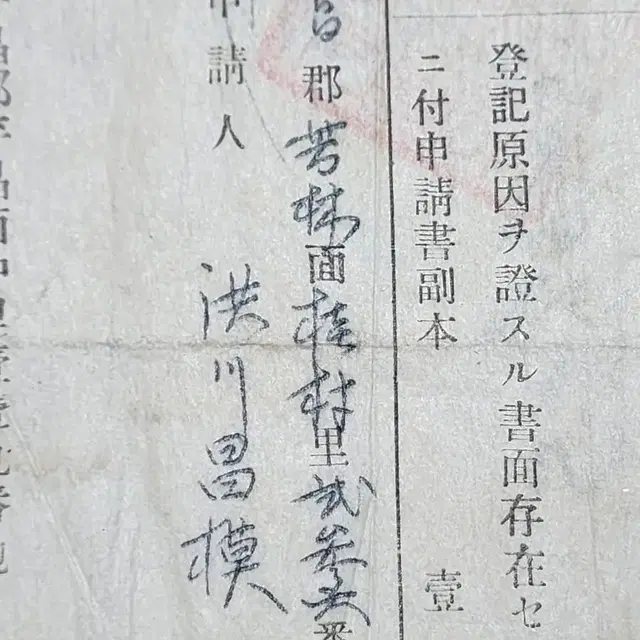 登記原因ヲ證スル書面存在セ
ニ付申請書副本 壹
昌郡芳林面桂村里貳參六番
申請人 洪川昌模